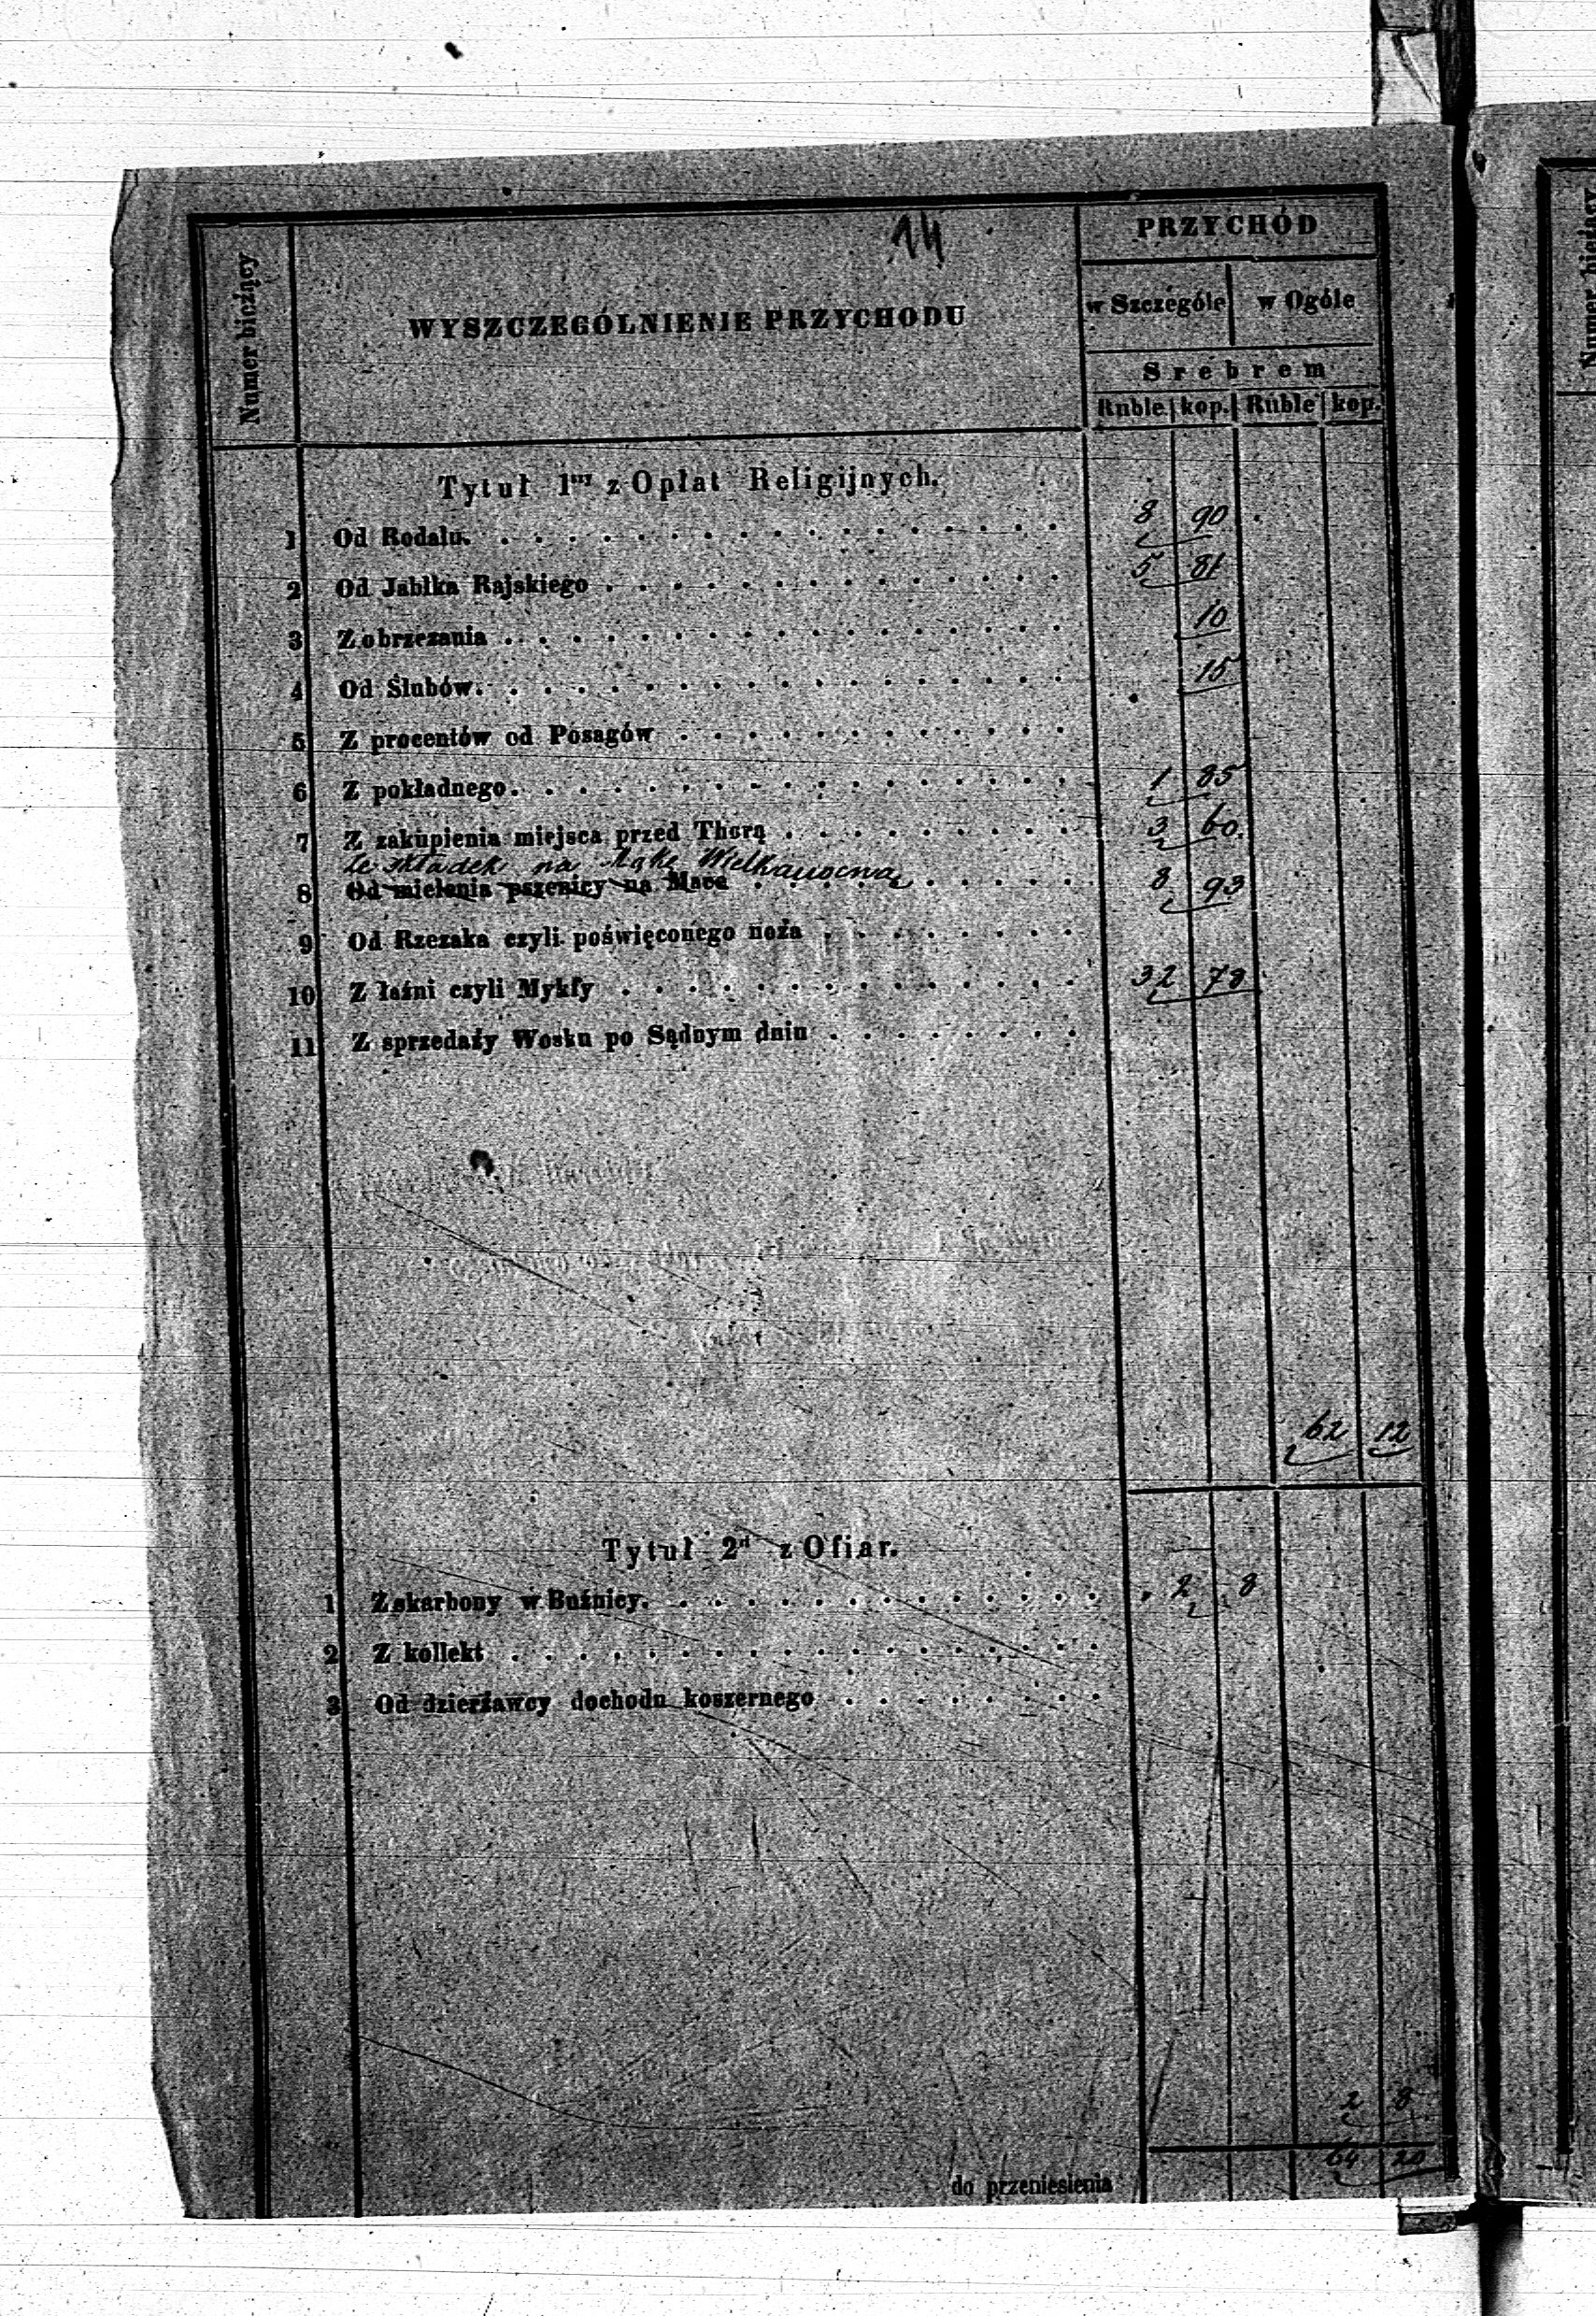 14
PRZYCHÓD
Numer bieżący
WYSZCZEGÓLNIENIE PRZYCHODU
w Szczególe w Ogóle
Srebrem
Ruble kop. Ruble kop.
Tytuł 1ny z Opłat Religijnych.
1 Od Rodału. 8 90
2 Od Jabłka Rajskiego 5 81
3 Z obrzezania 10
4 Od Ślubów. 15
5 Z procentów od Posagów
6 Z pokładnego. 1 85
7 Z zakupienia miejsca przed Thorą 3 60
Ze składek na Mąkę Wielkanocną
8 Od mielenia pszenicy na Mace 8 93
9 Od Rzezaka czyli poświęconego noża
10 Z łaźni czyli Mykfy 32 78
11 Z sprzedaży Wosku po Sądnym dniu
62 12
Tytuł 2gi z Ofiar.
1 Z skarbony w Bużnicy. 2 8
2 Z kollekt
3 Od dzierżawcy dochodu koszernego
2 8
do przeniesienia 64 20
Numer bieżący